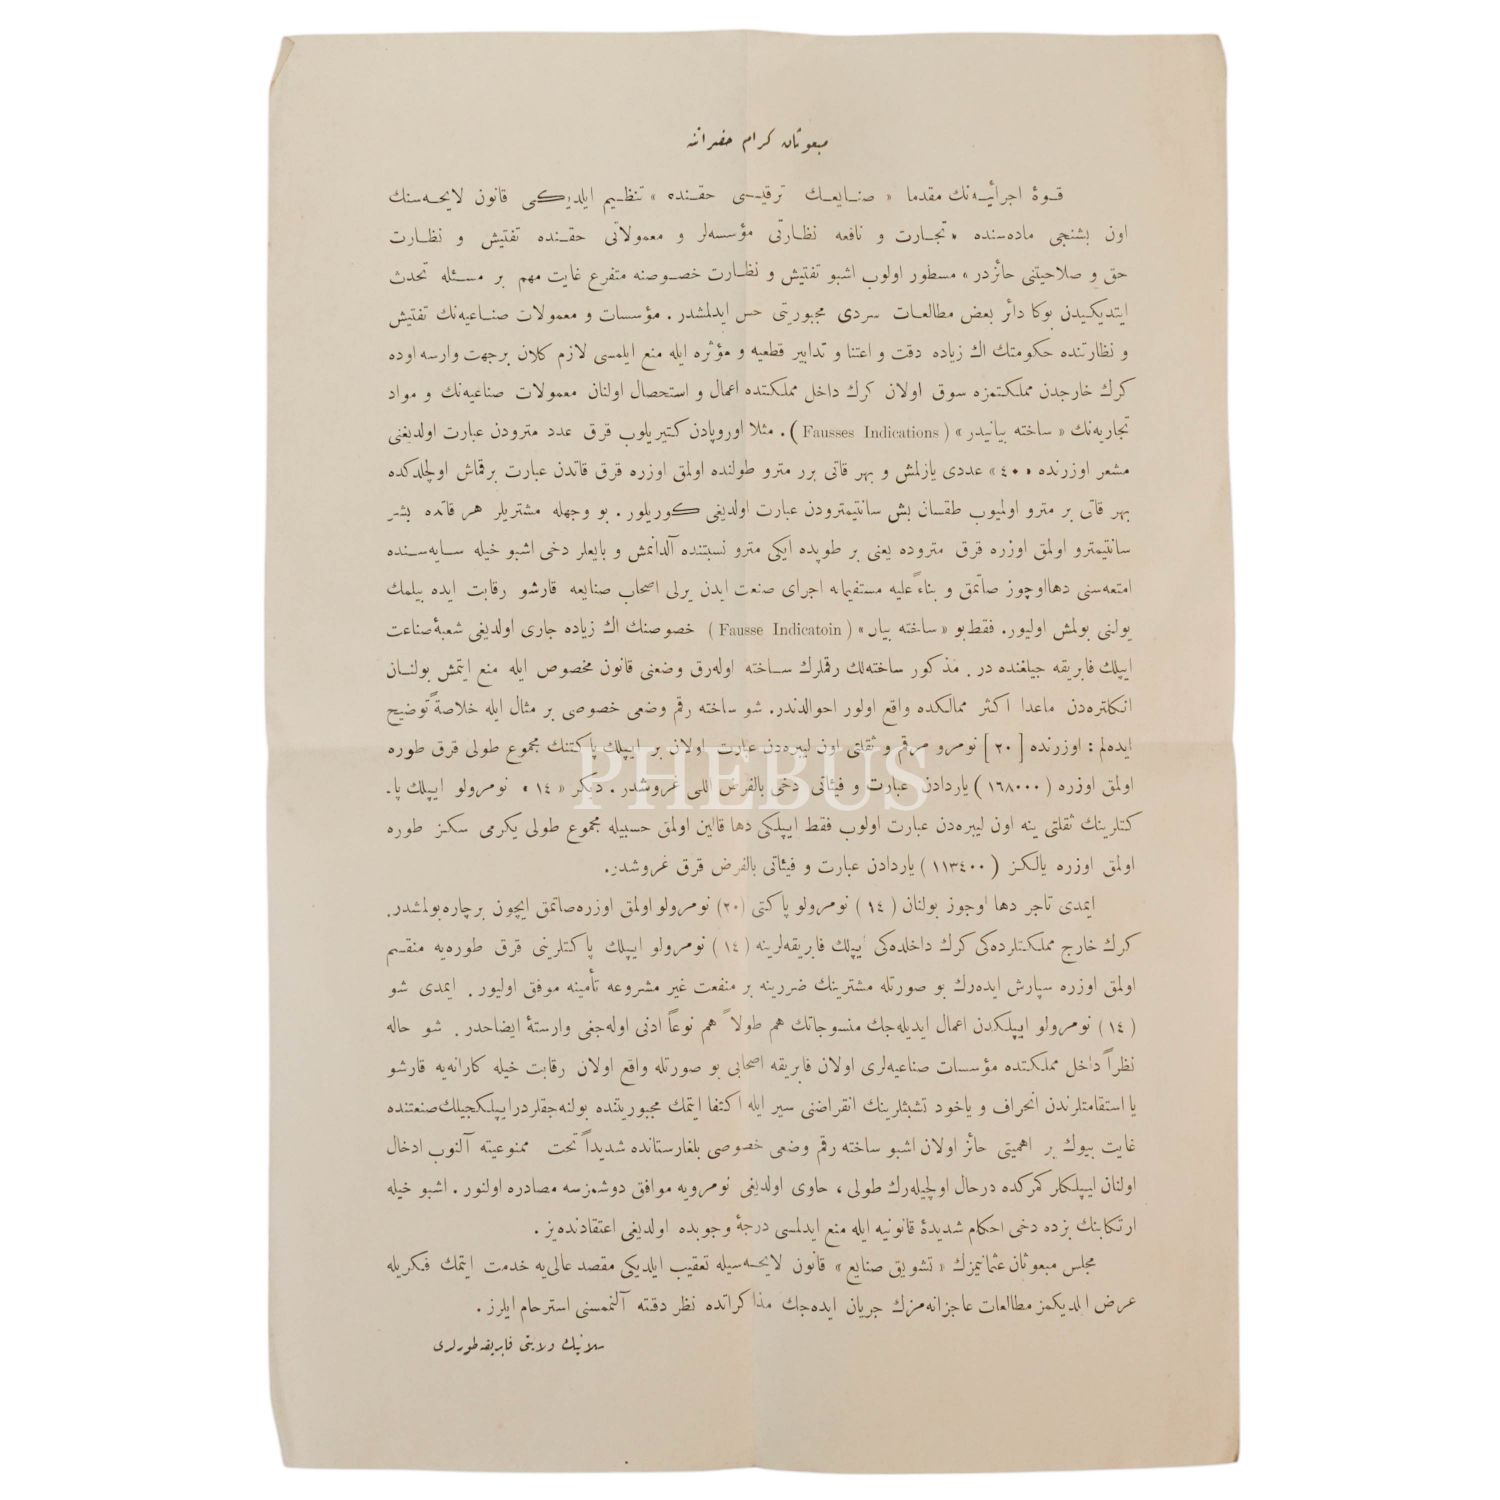 مبعوثان كرام حضراتنه
قوۀ اجرائيه‌نك مقدما « صنايعك ترقيسى حقنده » تنظيم ايلديكى قانون لايحه‌سنك
اون بشنجى ماده‌سنده « تجارت و نافعه نظارتى مؤسسه‌لر و معمولاتى حقنده تفتيش و نظارت
حق و صلاحيتنى حائزدر » مسطور اولوب اشبو تفتيش و نظارت خصوصنه متفرع غايت مهم بر مسئله تحدث
ايتديكيدن بوكا دائر بعض مطالعات سردى مجبوريتى حس ايدلمشدر . مؤسسات و معمولات صناعيه‌نك تفتيش
و نظارتنده حكومتك اك زياده دقت و اعتنا و تدابير قطعيه و مؤثره ايله منع ايلمسى لازم كلان برجهت وارسه اوده
كرك خارجدن مملكتمزه سوق اولان كرك داخل مملكتده اعمال و استحصال اولنان معمولات صناعيه‌نك و مواد
تجاريه‌نك « ساخته بيانيدر » ( Fausses Indications ) . مثلا اوروپادن كتيريلوب قرق عدد مترودن عبارت اولديغنى
مشعر اوزرنده « ٤٠ » عددى يازلمش و بهر قاتى برر مترو طولنده اولمق اوزره قرق قاتدن عبارت برقماش اولچلدكده
بهر قاتى بر مترو اولميوب طقسان بش سانتيمترودن عبارت اولديغى كوريلور . بو وجهله مشتريلر هر قاتده بشر
سانتيمترو اولمق اوزره قرق متروده يعنى بر طوپده ايكى مترو نسبتنده آلدانمش و بايعلر دخى اشبو خيله سايه‌سنده
امتعه‌سنى دها اوچوز صاتمق و بناءً عليه مستقيمانه اجراى صنعت ايدن يرلى اصحاب صنايعه قارشو رقابت ايده بيلمك
يولنى بولمش اوليور. فقط بو « ساخته بيان » ( Fausse Indicatoin ) خصوصنك اك زياده جارى اولديغى شعبۀ صناعت
ايپلك فابريقه جيلغنده در . مذكور ساخته‌لك رقملرك ساخته اوله‌رق وضعنى قانون مخصوص ايله منع ايتمش بولنان
انكلتره‌دن ماعدا اكثر ممالكده واقع اولور احوالدندر. شو ساخته رقم وضعى خصوصى بر مثال ايله خلاصةً توضيح
ايده‌لم : اوزرنده [ ٢٠ ] نومرو مرقم و ثقلتى اون ليبره‌دن عبارت اولان بر ايپلك پاكتنك مجموع طولى قرق طوره
اولمق اوزره ( ١٦٨٠٠٠ ) ياردادن عبارت و فيئاتى دخى بالفرض اللى غروشدر . ديكر « ١٤ » نومرولو ايپلك پا-
كتلرينك ثقلتى ينه اون ليبره‌دن عبارت اولوب فقط ايپلكى دها قالين اولمق حسبيله مجموع طولى يكرمى سكز طوره
اولمق اوزره يالكز ( ١١٣٤٠٠ ) ياردادن عبارت و فيئاتى بالفرض قرق غروشدر.
ايمدى تاجر دها اوجوز بولنان ( ١٤ ) نومرولو پاكتى (٢٠) نومرولو اولمق اوزره صاتمق ايچون برچاره بولمشدر.
كرك خارج مملكتلرده‌كى كرك داخلده‌كى ايپلك فابريقه‌لرينه ( ١٤ ) نومرولو ايپلك پاكتلرينى قرق طوره‌يه منقسم
اولمق اوزره سپارش ايده‌رك بو صورتله مشترينك ضررينه بر منفعت غير مشروعه تأمينه موفق اوليور . ايمدى شو
( ١٤ ) نومرولو ايپلكدن اعمال ايديله‌جك منسوجاتك هم طولاً هم نوعاً ادنى اوله‌جغى وارستۀ ايضاحدر . شو حاله
نظراً داخل مملكتده مؤسسات صناعيه‌لرى اولان فابريقه اصحابى بو صورتله واقع اولان رقابت خيله كارانه‌يه قارشو
يا استقامتلرندن انحراف و ياخود تشبثلرينك انقراضنى سير ايله اكتفا ايتمك مجبوريتنده بولنه‌جقلردر ايپلكجيلك صنعتنده
غايت بيوك بر اهميتى حائز اولان اشبو ساخته رقم وضعى خصوصى بلغارستانده شديداً تحت ممنوعيته آلنوب ادخال
اولنان ايپلكلر كمركده درحال اولچيله‌رك طولى ، حاوى اولديغى نومرويه موافق دوشمزسه مصادره اولنور . اشبو خيله
ارتكابنك بزده دخى احكام شديدۀ قانونيه ايله منع ايدلمسى درجۀ وجوبده اولديغى اعتقادنده‌يز .
مجلس مبعوثان عثمانيمزك « تشويق صنايع » قانون لايحه‌سيله تعقيب ايلديكى مقصد عالى‌يه خدمت ايتمك فكريله
عرض ايلديكمز مطالعات عاجزانه‌مزك جريان ايده‌جك مذاكراتده نظر دقته آلنمسنى استرحام ايلرز .
سلانيك ولايتى فابريقه‌طورلرى
PHEBUS